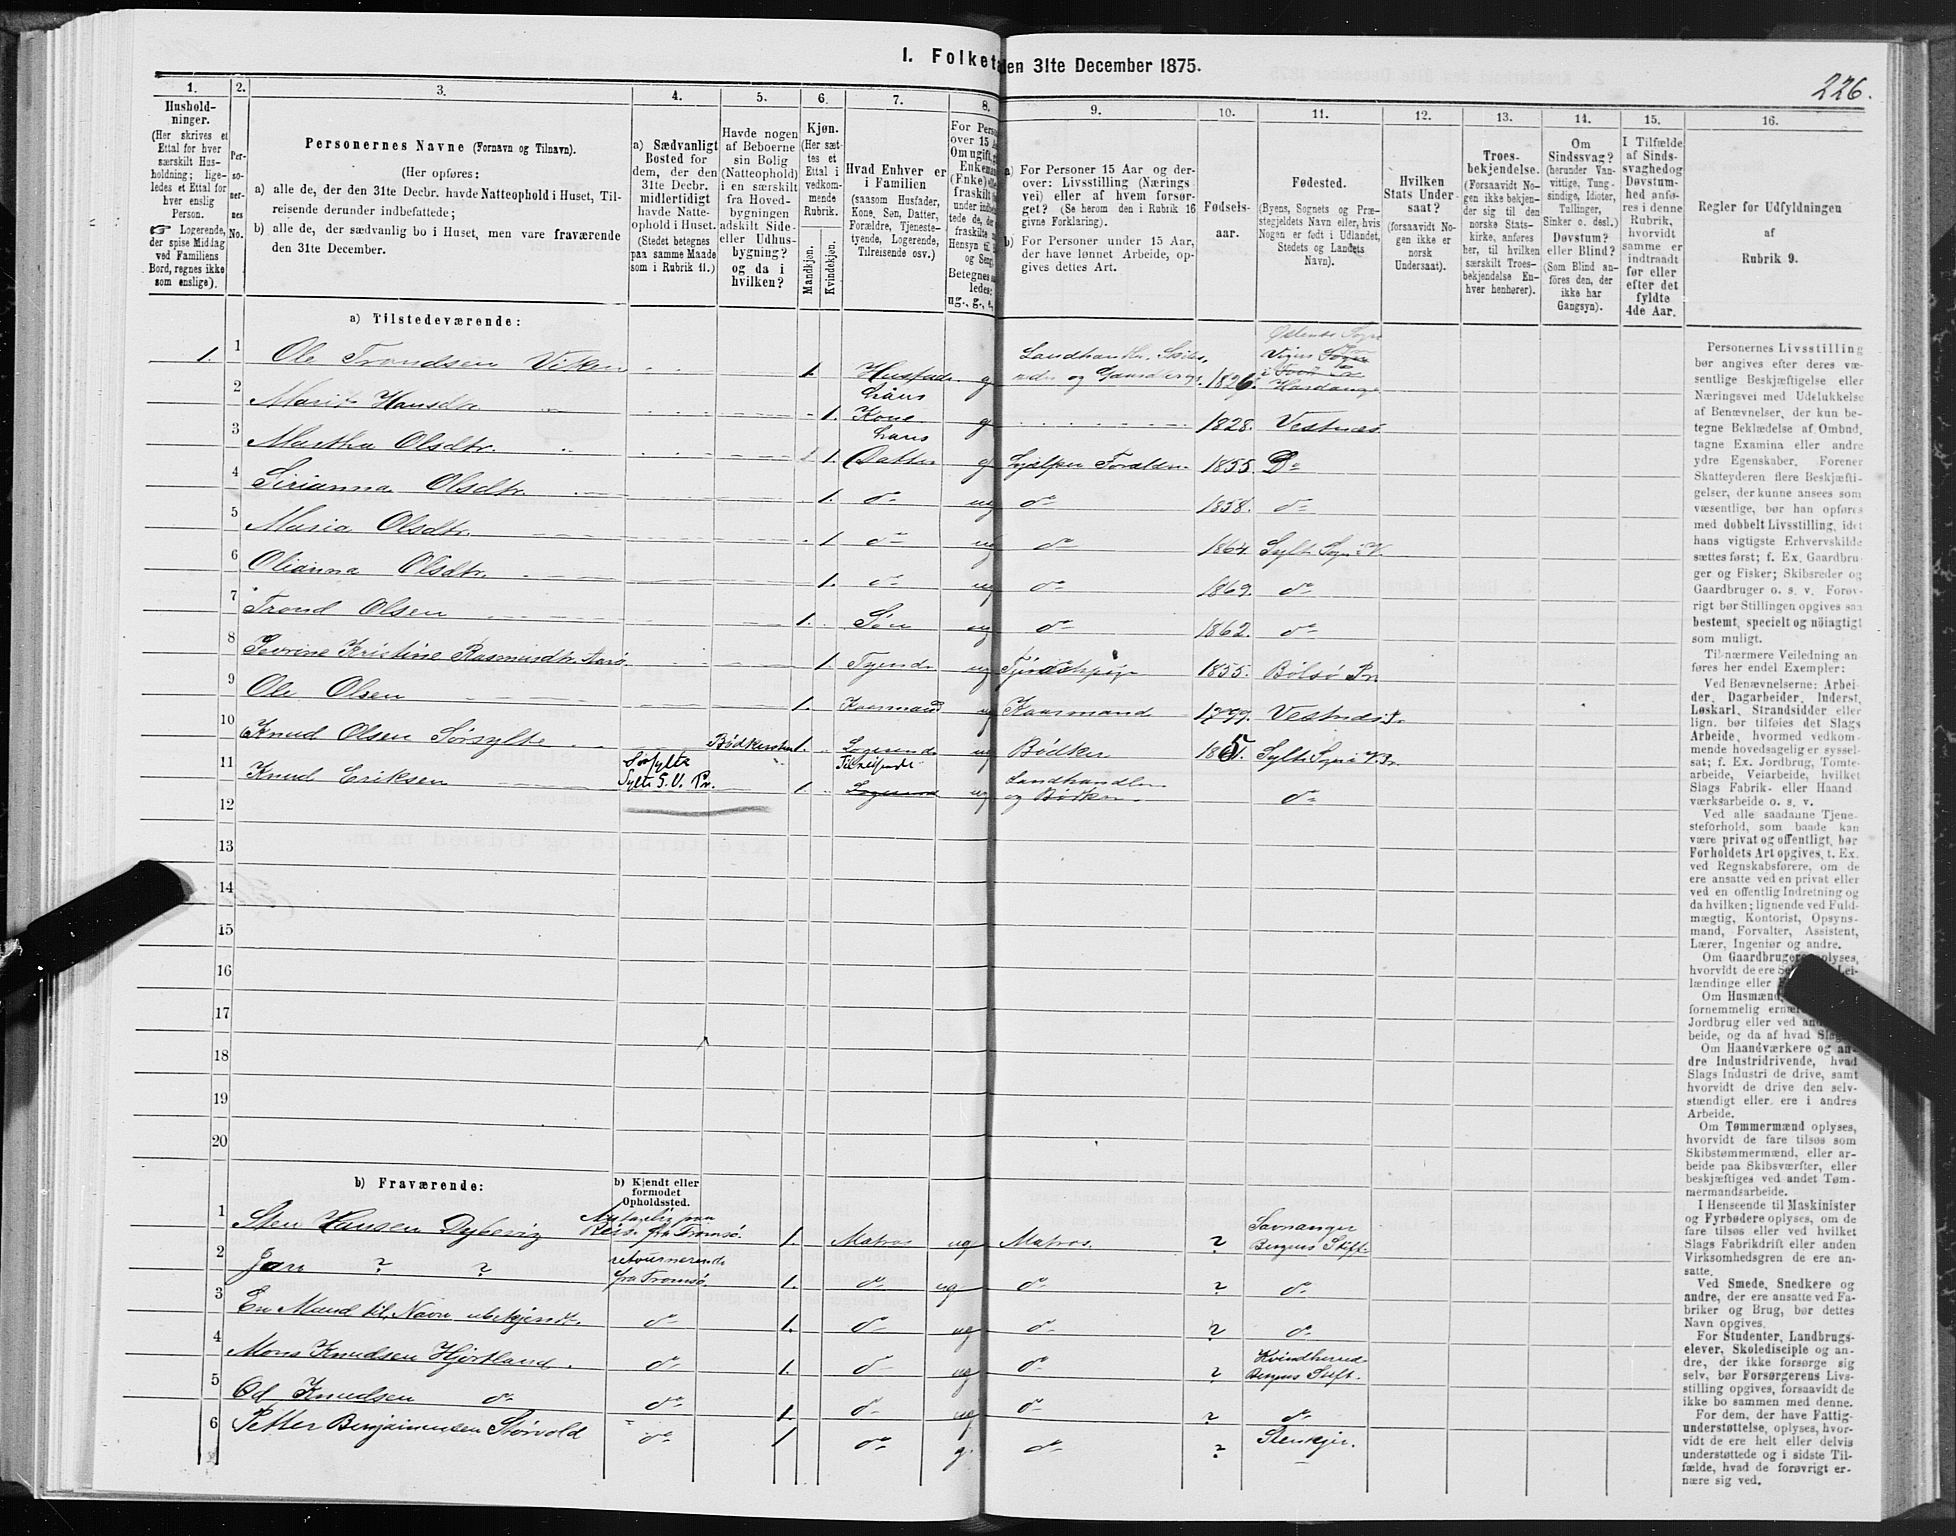 I. Folket
den 31te December 1875.
226.
1.
2.
3.
4.
5.
6.
7.
8.
9.
10.
11.
12.
13.
14.
15.
16.
Hushold-
ninger.
(Her skrives et
Ettal for hver
særskilt Hus-
holdning; lige-
ledes et Ettal for
hver enslig
Person.
☞ Logerende,
der spise Middag
ved Familiens
Bord, regnes ikke
som enslige).
Per-
so-
ner-
nes
No.
Personernes Navne (Fornavn og Tilnavn).
(Her opføres:
a) alle de, der den 31te Decbr. havde Natteophold i Huset, Til-
reisende derunder indbefattede;
b) alle de, der sædvanlig bo i Huset, men vare fraværende
den 31te December.
a) Sædvanligt
Bosted for
dem, der den
31te Decbr.
midlertidigt
havde Natte-
ophold i Huset.
(Stedet betegnes
paa samme Maade
som i Rubrik 11.)
Havde nogen
af Beboerne
sin Bolig
(Natteophold)
i en særskilt
fra Hoved-
bygningen
adskilt Side-
eller Udhus-
bygning?
og da i
hvilken?
Kjøn.
(Her sæt-
tes et
Ettal i
vedkom-
mende
Rubrik.
Mandkjøn.
Kvindekjøn.
Hvad Enhver er
i Familien
(saasom Husfader,
Kone, Søn, Datter,
Forældre, Tjeneste-
tyende, Logerende,
Tilreisende osv.)
For Perso
over 15 A
Om ugift, g
Enkeman
(Enke) elle
fraskilt
under indbe
tede de, de
fraskilte
Hensyn til
og Seng
Betegnes s
ledes:
ug., g., e.,
a) For Personer 15 Aar og der-
over: Livsstilling (Nærings
vei) eller af hvem forsør-
get? (Se herom den i Rubrik 16
givne Forklaring).
b) For Personer under 15 Aar,
der have lønnet Arbeide, op-
gives dettes Art.
Fødsels-
aar.
Fødested.
(Byens, Sognets og Præ-
stegjeldets Navn eller, hvis
Nogen er født i Udlandet,
Stedets og Landets
Navn).
Hvilken
Stats Under-
saat?
(forsaavidt No-
gen ikke er
norsk
Undersaat).
Troes-
bekjendelse.
(Forsaavidt No-
gen ikke bekjen-
der sig til den
norske Stats-
kirke, anføres
her, til hvilken
særskilt Troes-
bekjendelse En-
hver henhører).
Om
Sindssvag?
(herunder Van-
vittige, Tung-
sindige, Idioter,
Tullinger,
Sinker o. desl.)
Døvstum?
eller Blind?
(Som Blind an-
føres den, der
ikke har
Gangsyn).
I Tilfælde
af Sinds-
svaghed og
Døvstum-
hed anfø-
res i denne
Rubrik,
hvorvidt
samme er
indtraadt
før eller
efter det
fyldte
4de Aar.
Regler for Udfyldningen
af
Rubrik 9.
a) Tilstedeværende:
1. 1 Ole Trondsen Viken 1. Husfader g Landhandler, Skibs, reder og Gaardbrug. 1826. Vigør Hardanger
2 Marit Hansdtr 1. Kone g 1828. Vestnæs
3 Martha Olsdtr. 1. Datter g hjælper Forældre 1855. Do
4 Sirianna Olsdtr. 1. do ug do 1858. do
5 Maria Olsdtr. 1. do ug do 1864 Sylte Sogn V
6 Olianna Olsdtr. 1. do ug do 1869. do
7 Trond Olsen 1. Søn ug do 1862. do
8 Severine Kristine Rasmusdtr. Aarø 1. Tyende ug Tjenestepige 1855. Bolsø Pr
9 Ole Olsen 1. Kaarmand ug Kaarmand 1799. Vestnæs Pr.
10 Knud Olsen Sørsylte Bødkerstue 1. Logerende ug Bødker 1851. Sylte Sogn V. Pr.
11 Knud Eriksen Sørsylte Sylte S. V. Pr. 1. Tilreisende Logerende ug Landhandler og Bødker do
12
13
14
15
16
17
18
19
20
b) Fraværende:
b) Kjendt eller
formodet
Opholdssted.
1 Sten Hansen Dybevig Antagelig paa Reise fra Tromsø. 1. Matros ug Matros. ? Bergens Stift.
2 Jan ? ? retournerende fra Tromsø. 1. do ug do ? do
3 En Mand til, Navn ubekjendt. do 1. do ug do ? do
4 Mons Knudsen Hjortland. do 1. do ug do ? Kvindherred Bergens Stift.
5 Od Knudsen do do 1. do ug do ? do
6 Petter Benjaminsen Størvold do 1 do g. do ? Stenkjer.
Personernes Livsstilling
bør angives efter deres væ-
sentlige Beskjæftigelse eller
Næringsvei med Udelukkelse
af Benævnelser, der kun be-
tegne Beklædelse af Ombud,
tagne Examina eller andre
ydre Egenskaber. Forener
Skatteyderen flere Beskjæfti-
gelser, der kunne ansees som
væsentlige, bør han opføres
med dobbelt Livsstilling, idet
hans vigtigste Erhvervskilde
sættes først; f. Ex. Gaardbru-
ger og Fisker; Skibsreder og
Gaardbruger o. s. v. Forøv-
rigt bør Stillingen opgives saa
bestemt, specielt og nöiagtigt
som muligt.
Til nærmere Veiledning an-
føres her endel Exempler:
Ved Benævnelserne: Arbei-
der, Dagarbeider, Inderst,
Løskarl, Strandsidder eller
lign. bør tilføies det Slags
Arbeide, hvormed vedkom-
mende hovedsagelig er syssel-
sat; f. Ex. Jordbrug, Tomte-
arbeide, Veiarbeide, hvilket
Slags Fabrik- eller Haand
værksarbeide o. s. v.
Ved alle saadanne Tjene-
steforhold, som baade kan
være privat og offentligt, bør
Forholdets Art opgives, t. Ex.
ved Regnskabsførere, om de
ere ansatte ved en privat eller
ved en offentlig Indretning og
da hvilken; lignende ved Fuld-
mægtig, Kontorist, Opsyns-
mand, Forvalter, Assistent,
Lærer, Ingeniør og andre.
Om Gaardbrugere oplyses,
hvorvidt de ere Se Lei-
lændinge eller
Om Husmænd,
fornemmelig ernæ
Jordbrug eller ved an
beide, og da af hvad Slags
Om Haandværkere og an-
dre Industridrivende, hvad
Slags Industri de drive, samt
hvorvidt de drive den selv-
stændigt eller ere i andres
Arbeide.
Om Tømmermænd oplyses,
hvorvidt de fare tilsøs som
Skibstømmermænd, eller ar-
beide paa Skibsværfter, eller
beskjæftiges ved andet Tøm-
mermandsarbeide.
I Henseende til Maskinister
og Fyrbødere oplyses, om de
fare tilsøs eller ved hvilket
Slags Fabrikdrift eller anden
Virksomhedsgren de ere an-
satte.
Ved Smede, Snedkere og
andre, der ere ansatte ved Fa-
briker og Brug, bør dettes
Navn opgives.
For Studenter, Landbrugs-
elever, Skoledisciple og an-
dre, der ikke forsørge sig
selv, bør Forsørgerens Livs-
stilling opgives, forsaavidt de
ikke bo sammen med denne.
For dem, der have Fattig-
understøttelse, oplyses, hvor-
vidt de ere helt eller delvis
understøttede og i sidste Til-
fælde, hvad de forøvrigt er-
nære sig ved.